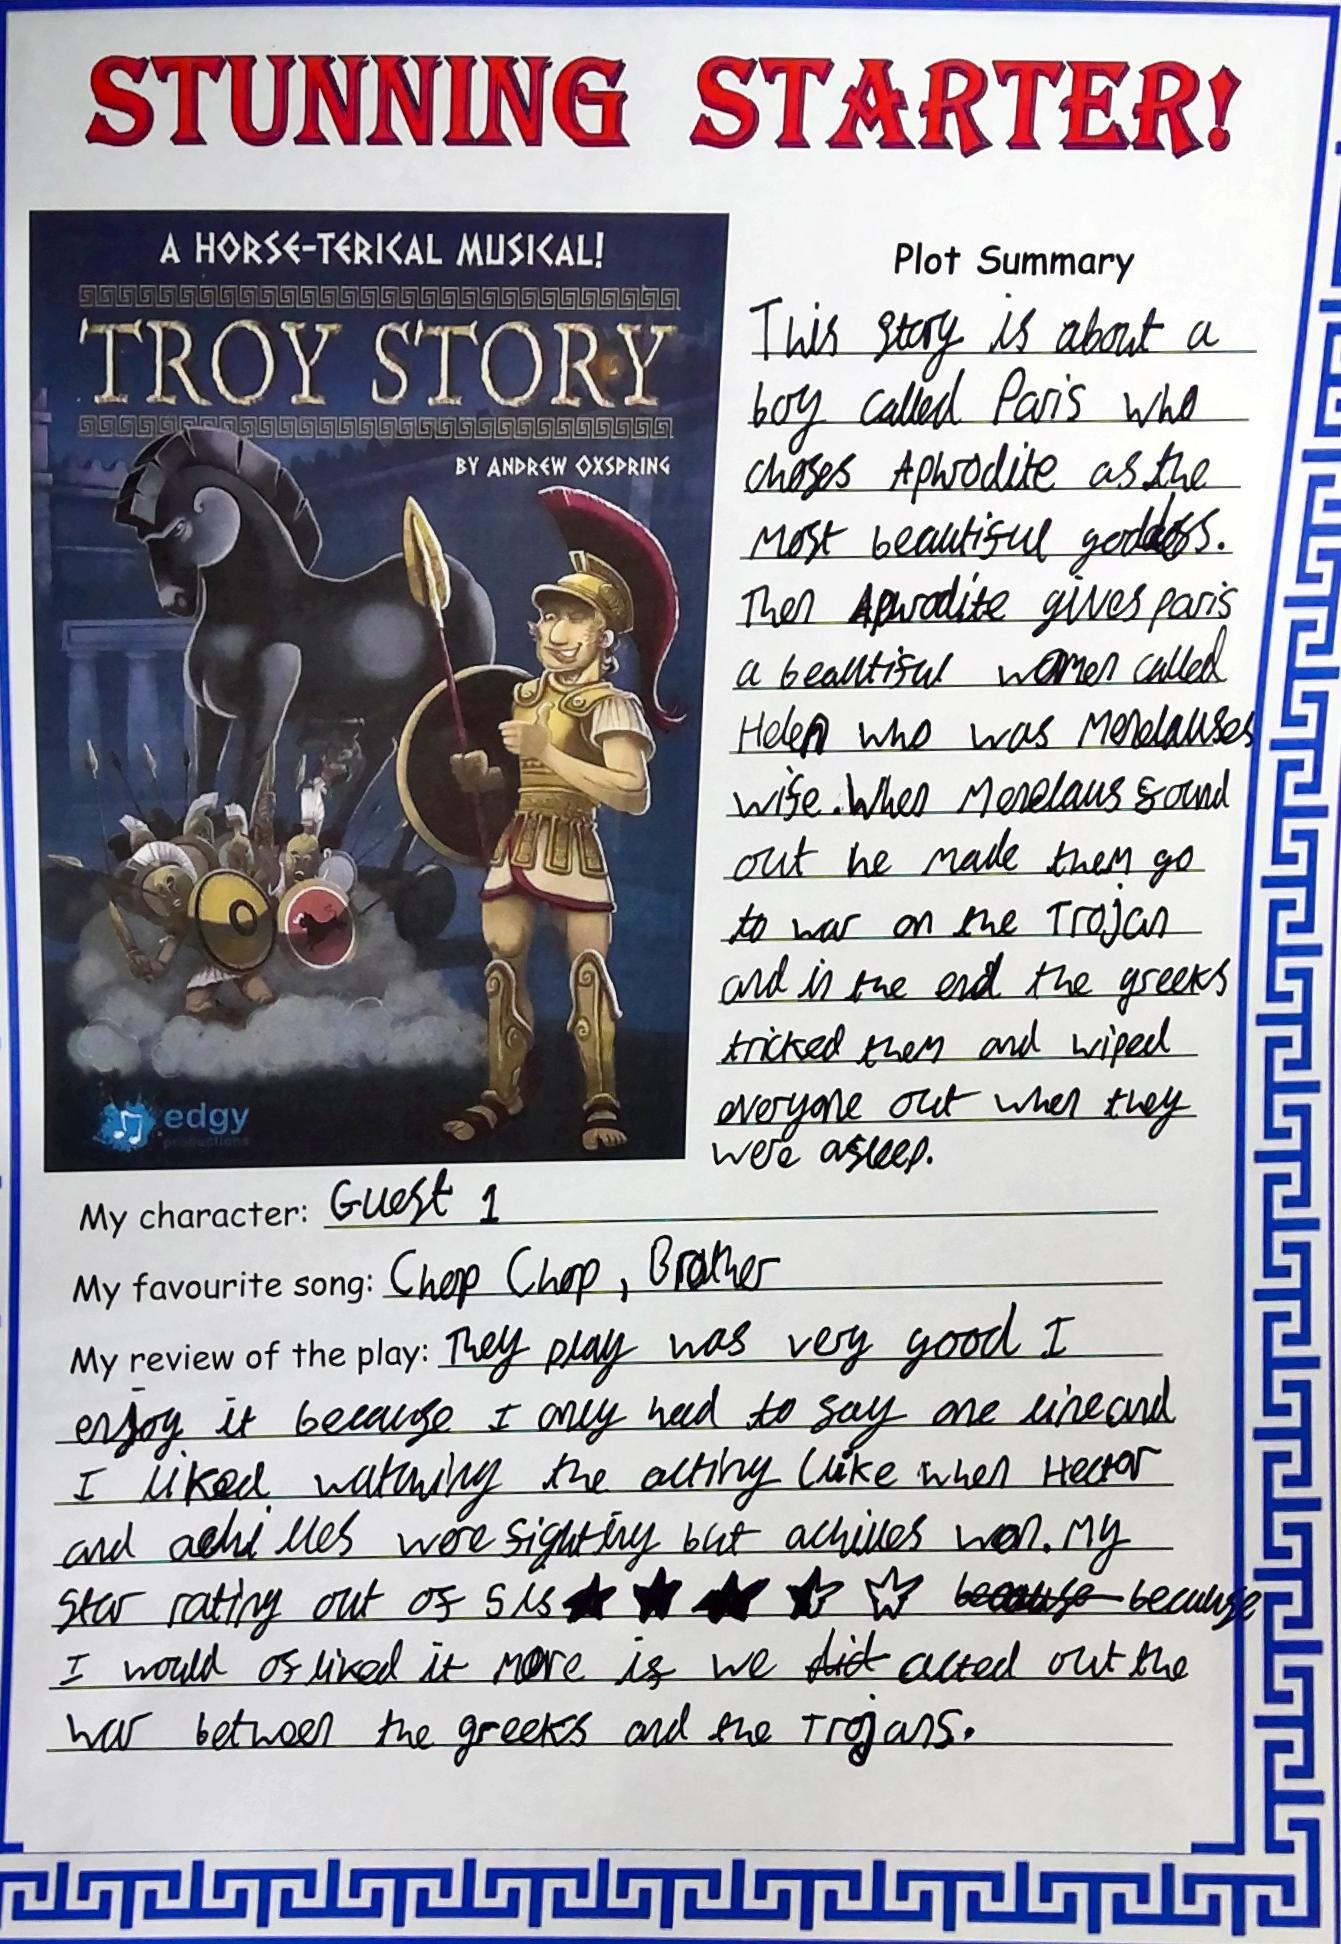 STUNNING STARTER!
A HORSE-TERICAL MUSICAL!
TROY STORY
BY ANDREW OXSPRING
edgy
productions
Plot Summary
This story is about a
boy called Paris who
choses Aphrodite as the
most beautiful goddess.
Then Aphrodite gives paris
a beautiful women called
Helen who was Menelauses
wife. When Menelaus found
out he made them go
to war on the Trojan
and in the end the greeks
tricked them and wiped
everyone out when they
were asleep.
My character: Guest 1
My favourite song: Chop Chop, Brother
My review of the play: They play was very good I
enjoy it because I only had to say one line and
I liked watching the acting (like when Hector
and achilles were fighting but achilles won. My
Star rating out of 5 is ★ ★ ★ ⯪ ☆ because because
I would of liked it more if we did acted out the
war between the greeks and the Trojans.